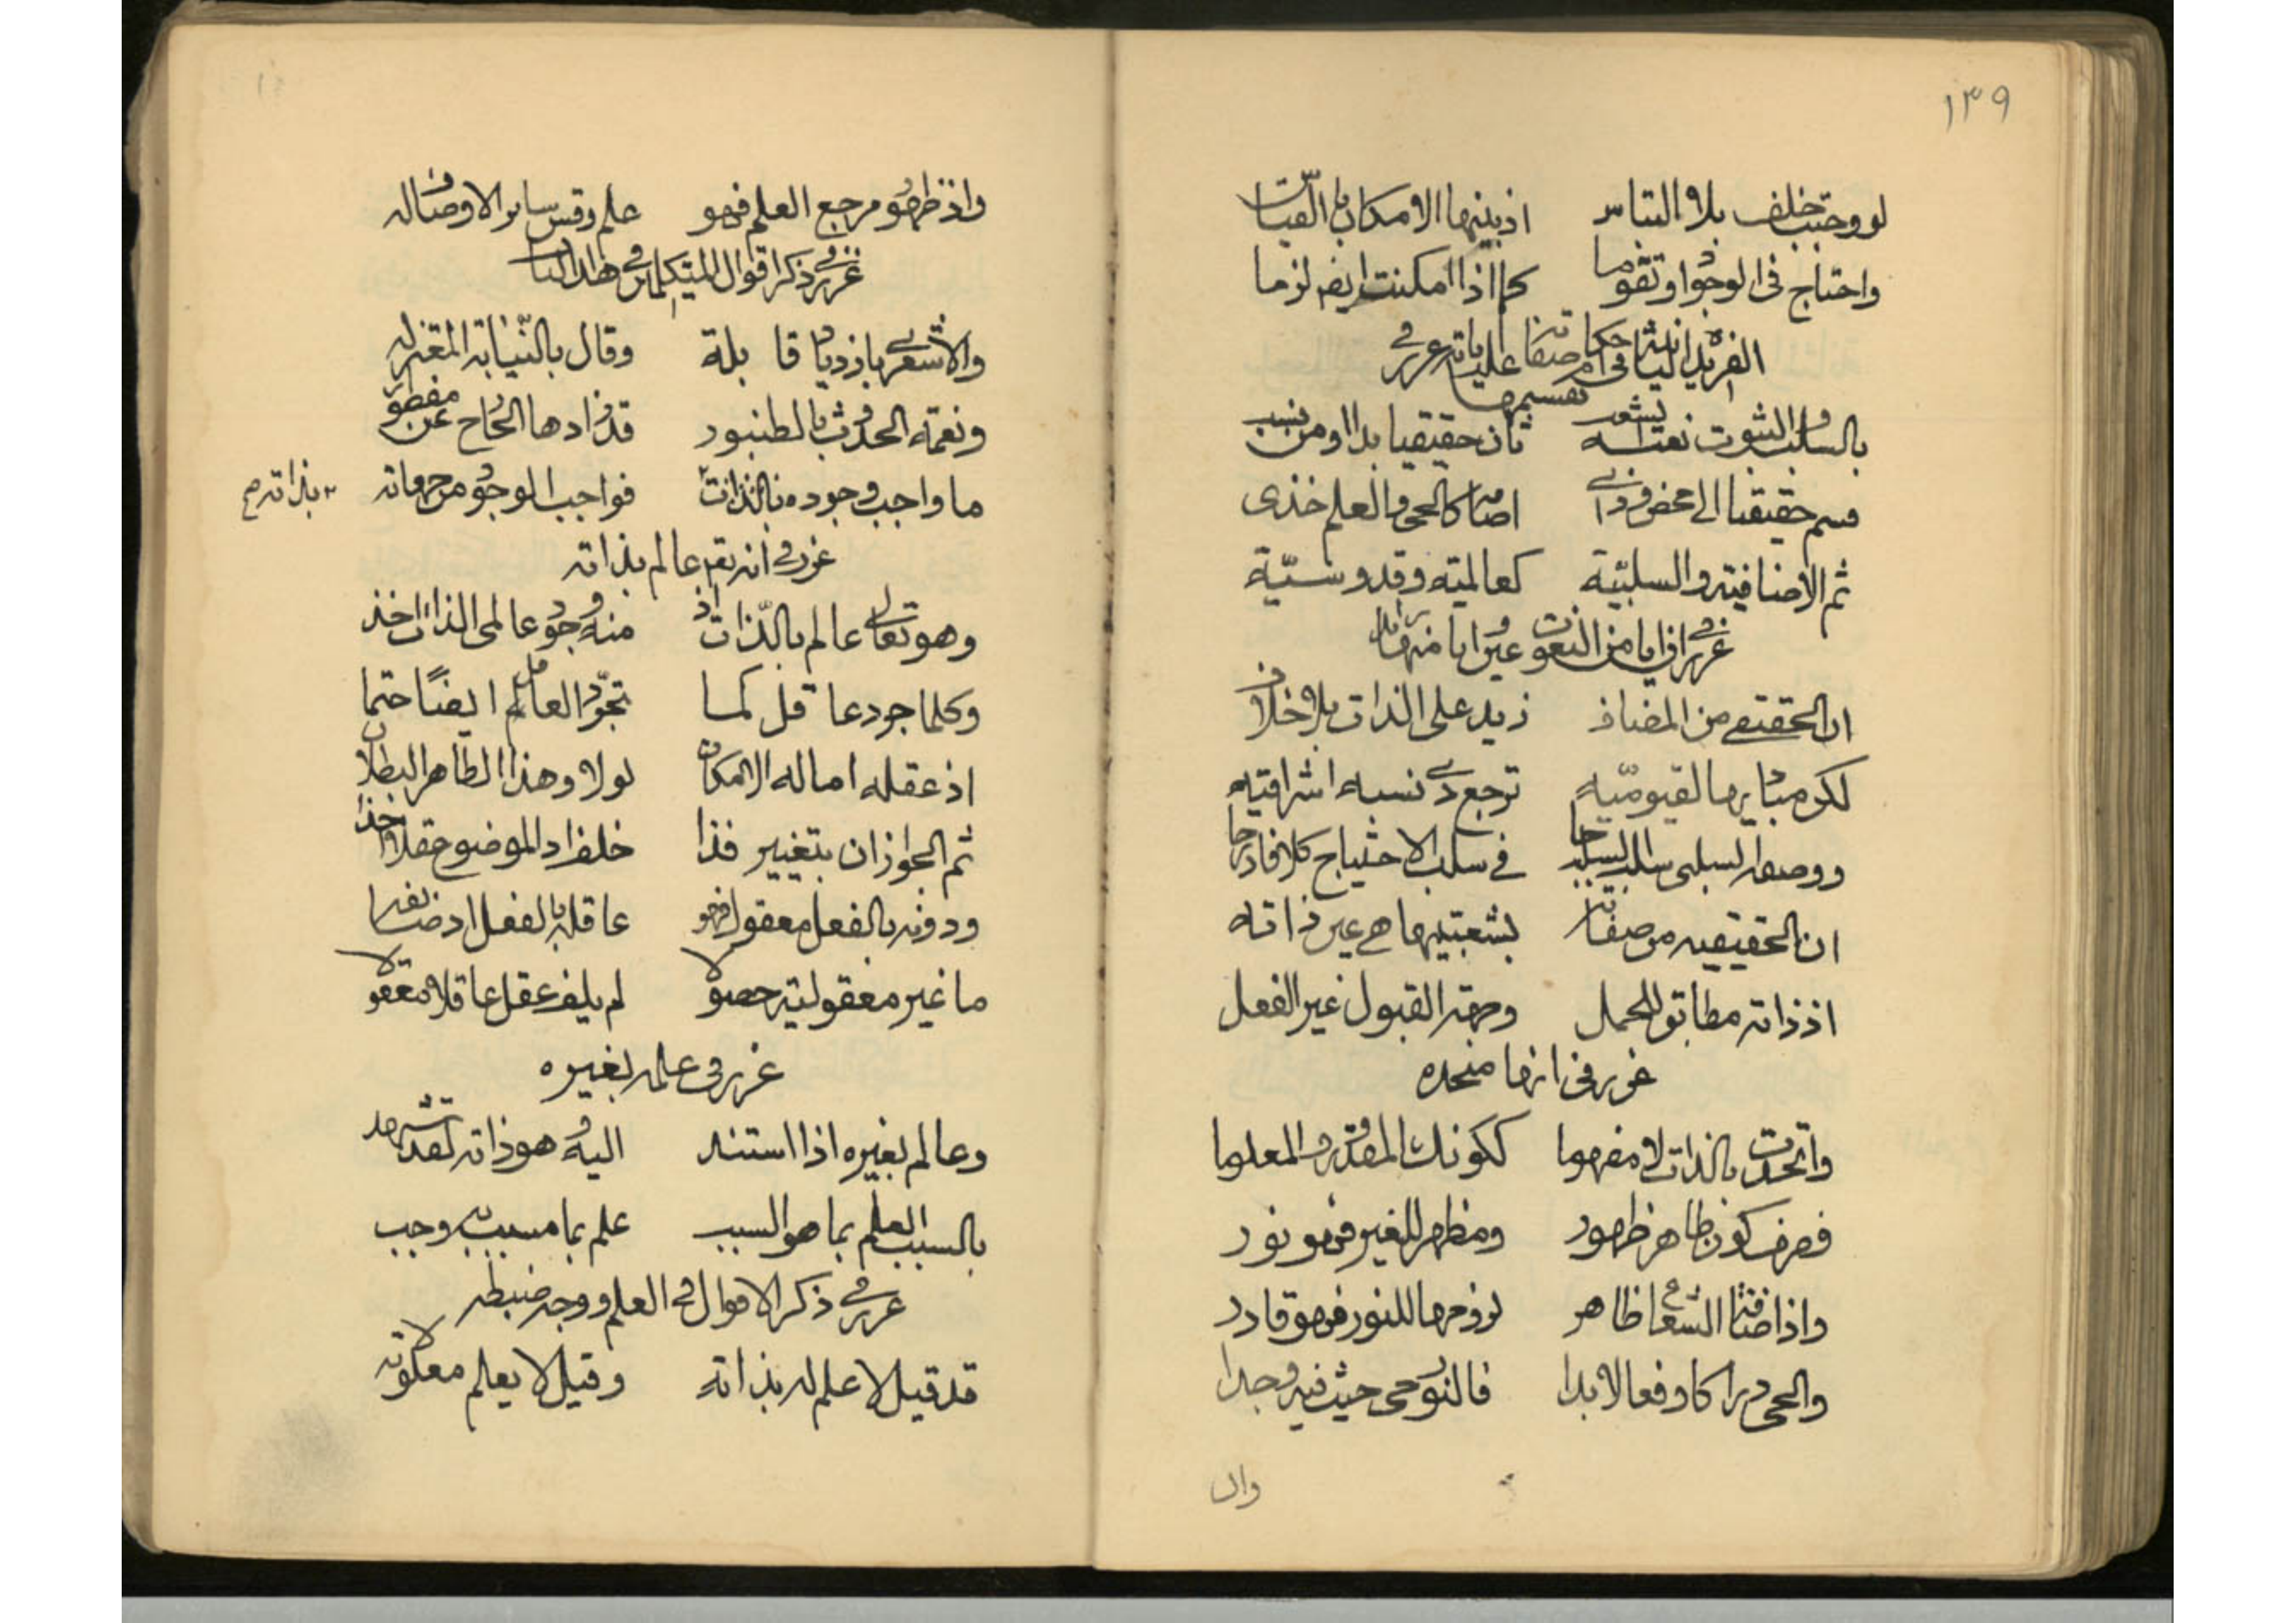 ١٣٩
لو وجبت خلف بلا التباس اذ بينها الامكان بالقياس
واحتاج في الوجود او تقوما كما اذا امكنت ايضا لزما
الفريدة الثانية في احكام صفاته عليا ته غرر في
تقسيمها
بالسلب والثبوت نعته يشعب ثان حقيقيا بدا ومن نسب
قسم حقيقيا الى محض وذي اضافة كالحي والعلم خذي
ثم الاضافية والسلبية كعالمية وقدوسية
غرر في ان ايا من النعوت عين وايا منها زائد
ان الحقيقي من المضاف زيد على الذات بلا خلاف
لكن مباديها لقيومية ترجع ذي نسبة اشراقية
ووصفه السلبي سلب السلب جا في سلب الاحتياج كلا ادرجا
ان الحقيقية من صفاته بشعبتيها هي عين ذاته
اذ ذاته مطابق للحمل وجهة القبول غير الفعل
غرر في انها متحده
واتحدت بالذات لا مفهوما ككونك المقدور والمعلوما
فصرف كون ظاهر ظهور ومظهر للغير فهو نور
واذ افاضة الشعاع ظاهر لزومها للنور فهو قادر
والحي دراكا وفعالا بدا فالنور حي حيث فيه وجدا
وال
واذ ظهور مرجع العلم فهو علم وقس سائر الاوصاف له
غرر في ذكر اقوال المتكلمين في هذا الباب
والاشعري بازدياد قائلة وقال بالنيابة المعتزلة
ونغمة الحدوث بالطنبور قد زادها الخارج عن مفطور
ما واجب وجوده بالذات فواجب الوجود من جهات
بذاته صح
غرر في انه تع عالم بذاته
وهو تعالى عالم بالذات اذ منه وجود عالمي الذات اخذ
وكلما جرد عاقل كما تجرد العاقل ايضا حتما
اذ عقله اما له الامكان لو لا وهذا الظاهر البطلان
ثم الجواز ان بتغيير فذا خلف اذ الموضوع عقلا اخذا
ودونه بالفعل معقول فهو عاقله بالفعل اذ ضايفه
ما غير معقوليته حصولا لم يلف عقل عاقلا معقولا
غرر في علمه بغيره
وعالم بغيره اذا استند اليه وهو ذاته لقد شهد
بالسبب العلم بما هو السبب علم بما مسبب به وجب
غرر في ذكر الاقوال في العلم ووجه ضبطه
قد قيل لا علم له بذاته وقيل لا يعلم معلولاته